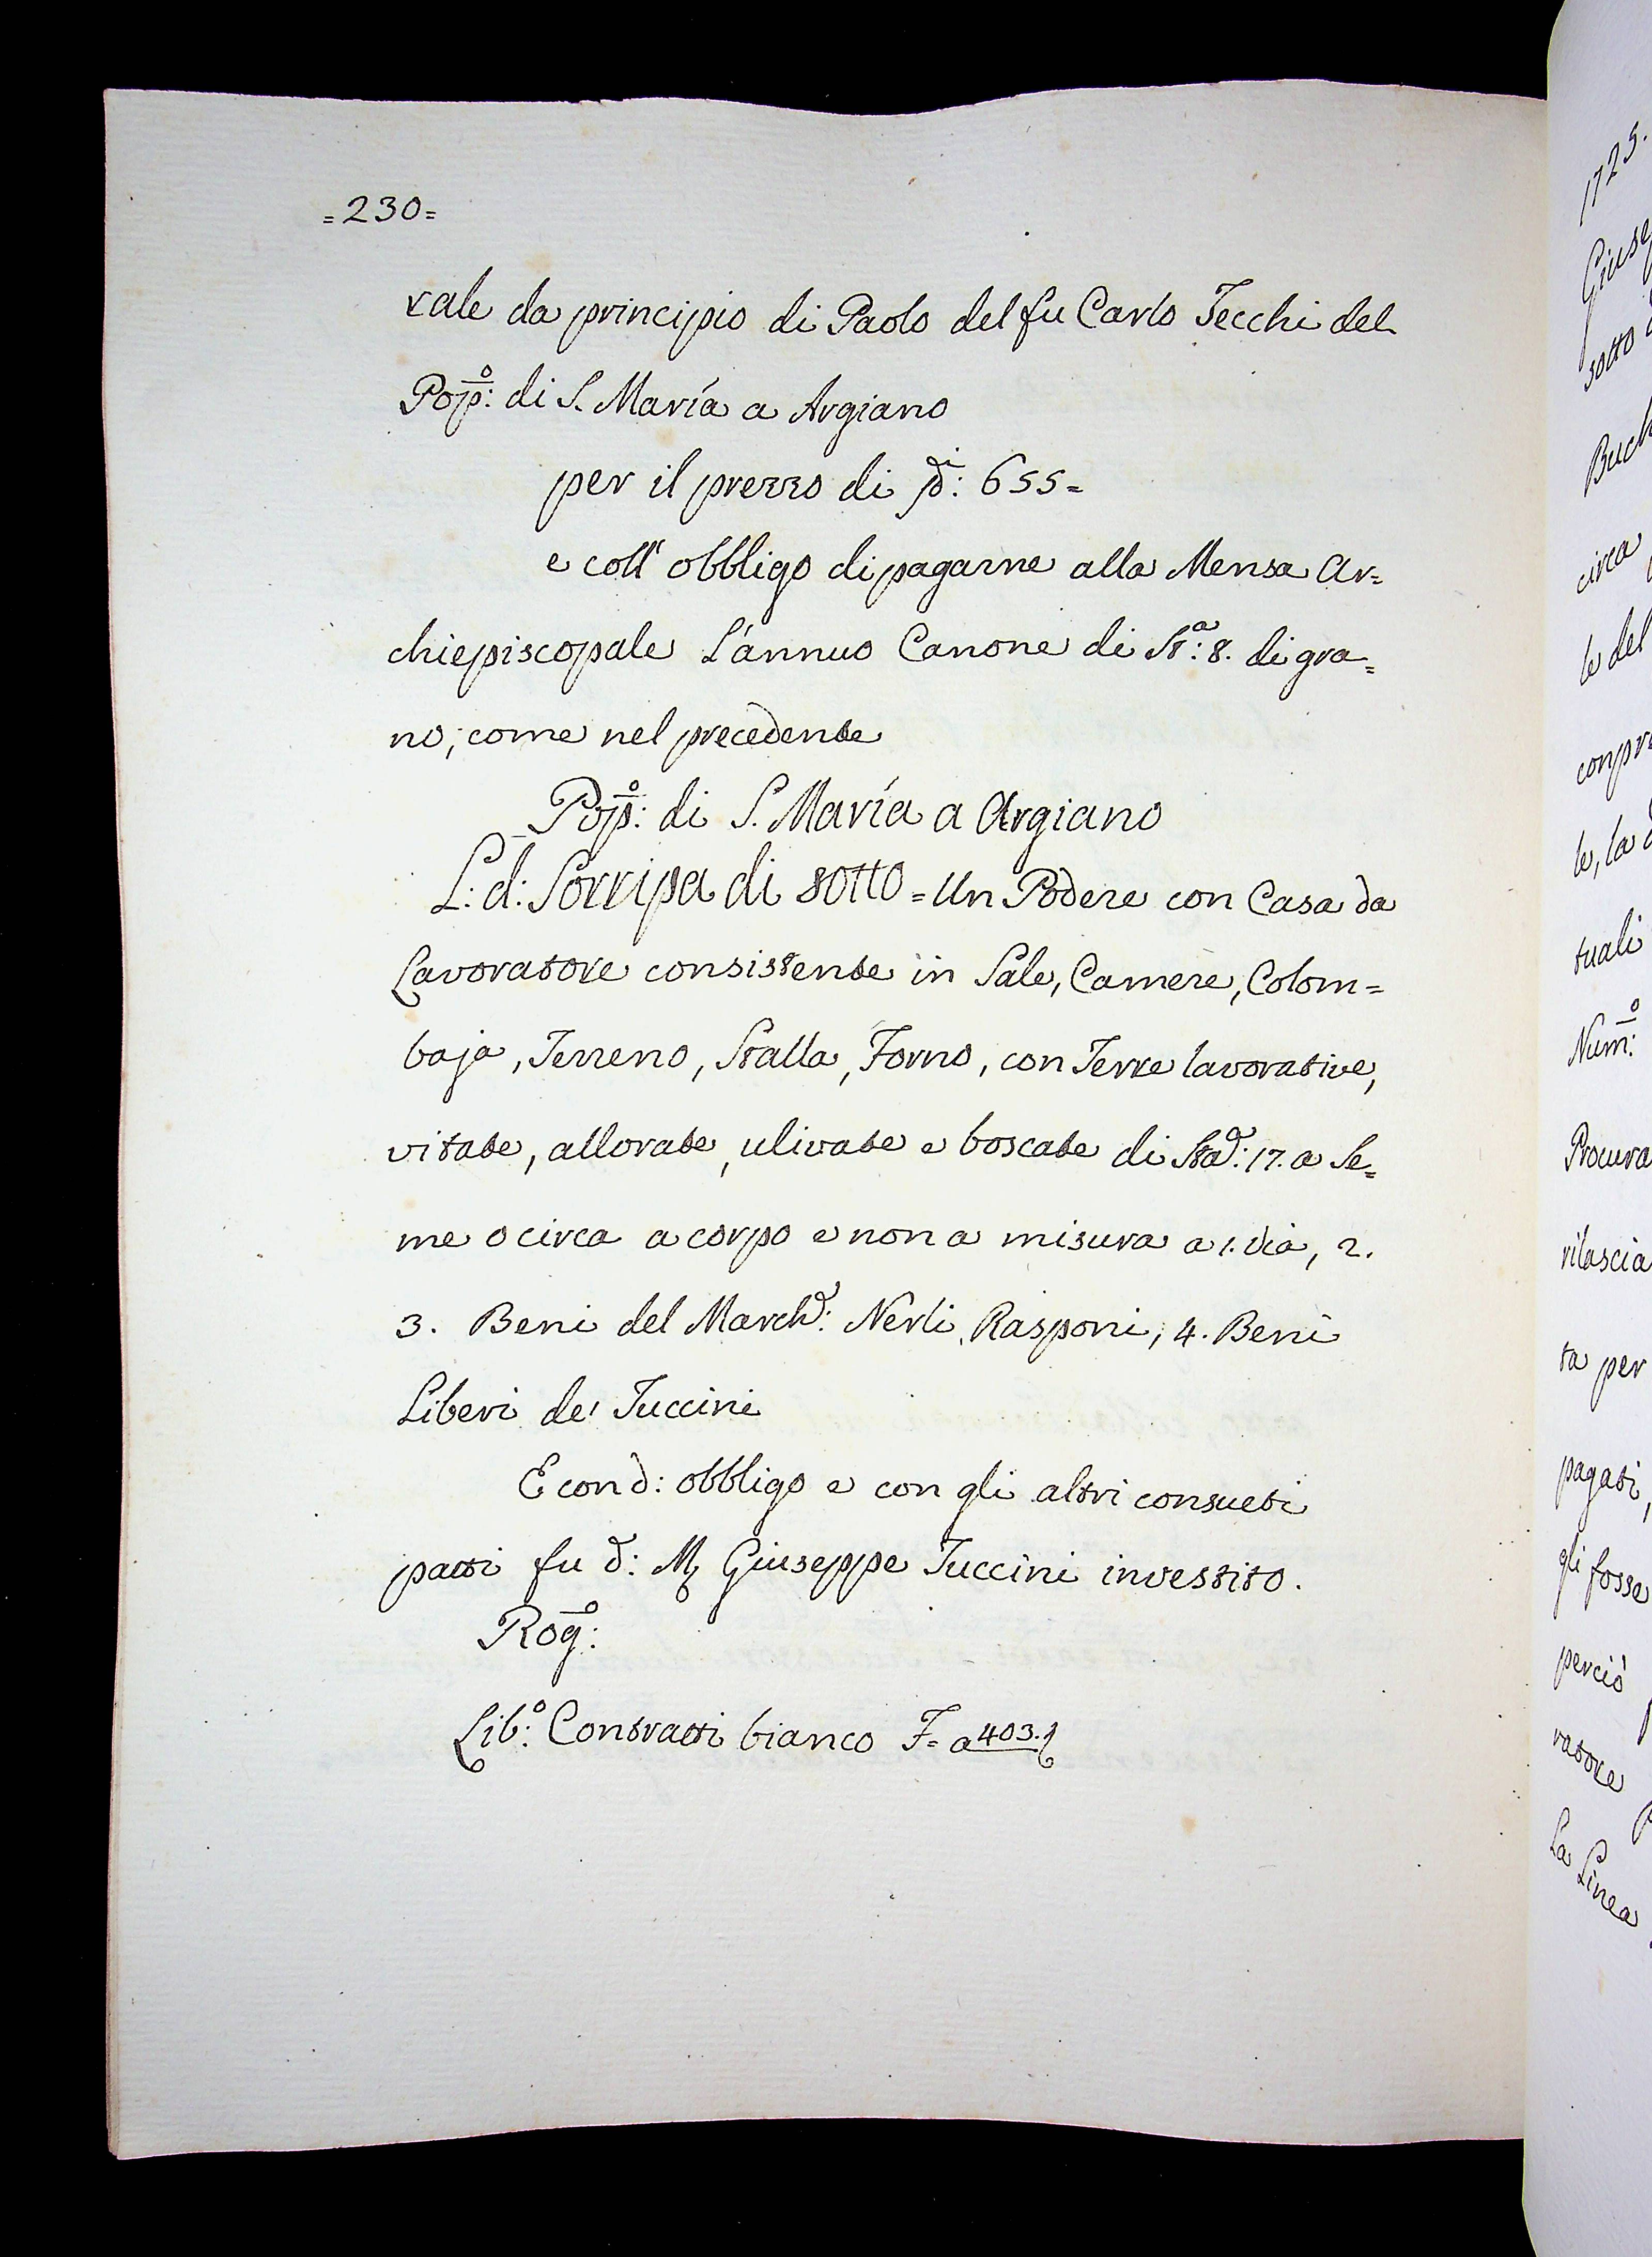 =230=
rale da principio di Paolo del fu Carlo Tecchi del
Pop:º di S. María a Argiano
per il prezzo di 655=
e coll' obbligo di pagarne alla Mensa Ar=
chiepiscopale L'annuo Canone di St:ª 8. di gra=
no, come nel precedente
Pop:º di S. María a Argiano
L: d: Sorripa di sotto = Un Podere con Casa da
Lavoratore consistente in Sale, Camere, Colom=
baja, Terreno, Stalla, Forno, con Terre lavorative,
vitate, allorate, ulivate e boscate di Stad:ª 17. a Se=
me o circa a corpo e non a misura a 1. via, 2.
3. Beni del March:e Nerli, Rasponi, 4. Beni
Liberi de' Tuccini
E con d: obbligo e con gli altri consueti
patti fu d: M Giuseppe Tuccini investito.
Rog:º
Lib:º Contratti bianco F= a 403.
1725.
Giusep
sotto
Buch
circa
le del
compra
le, la
tuali
Num:º
Procura
rilascia
ta per
pagati,
gli fosse
perciò
ratore
La Linea